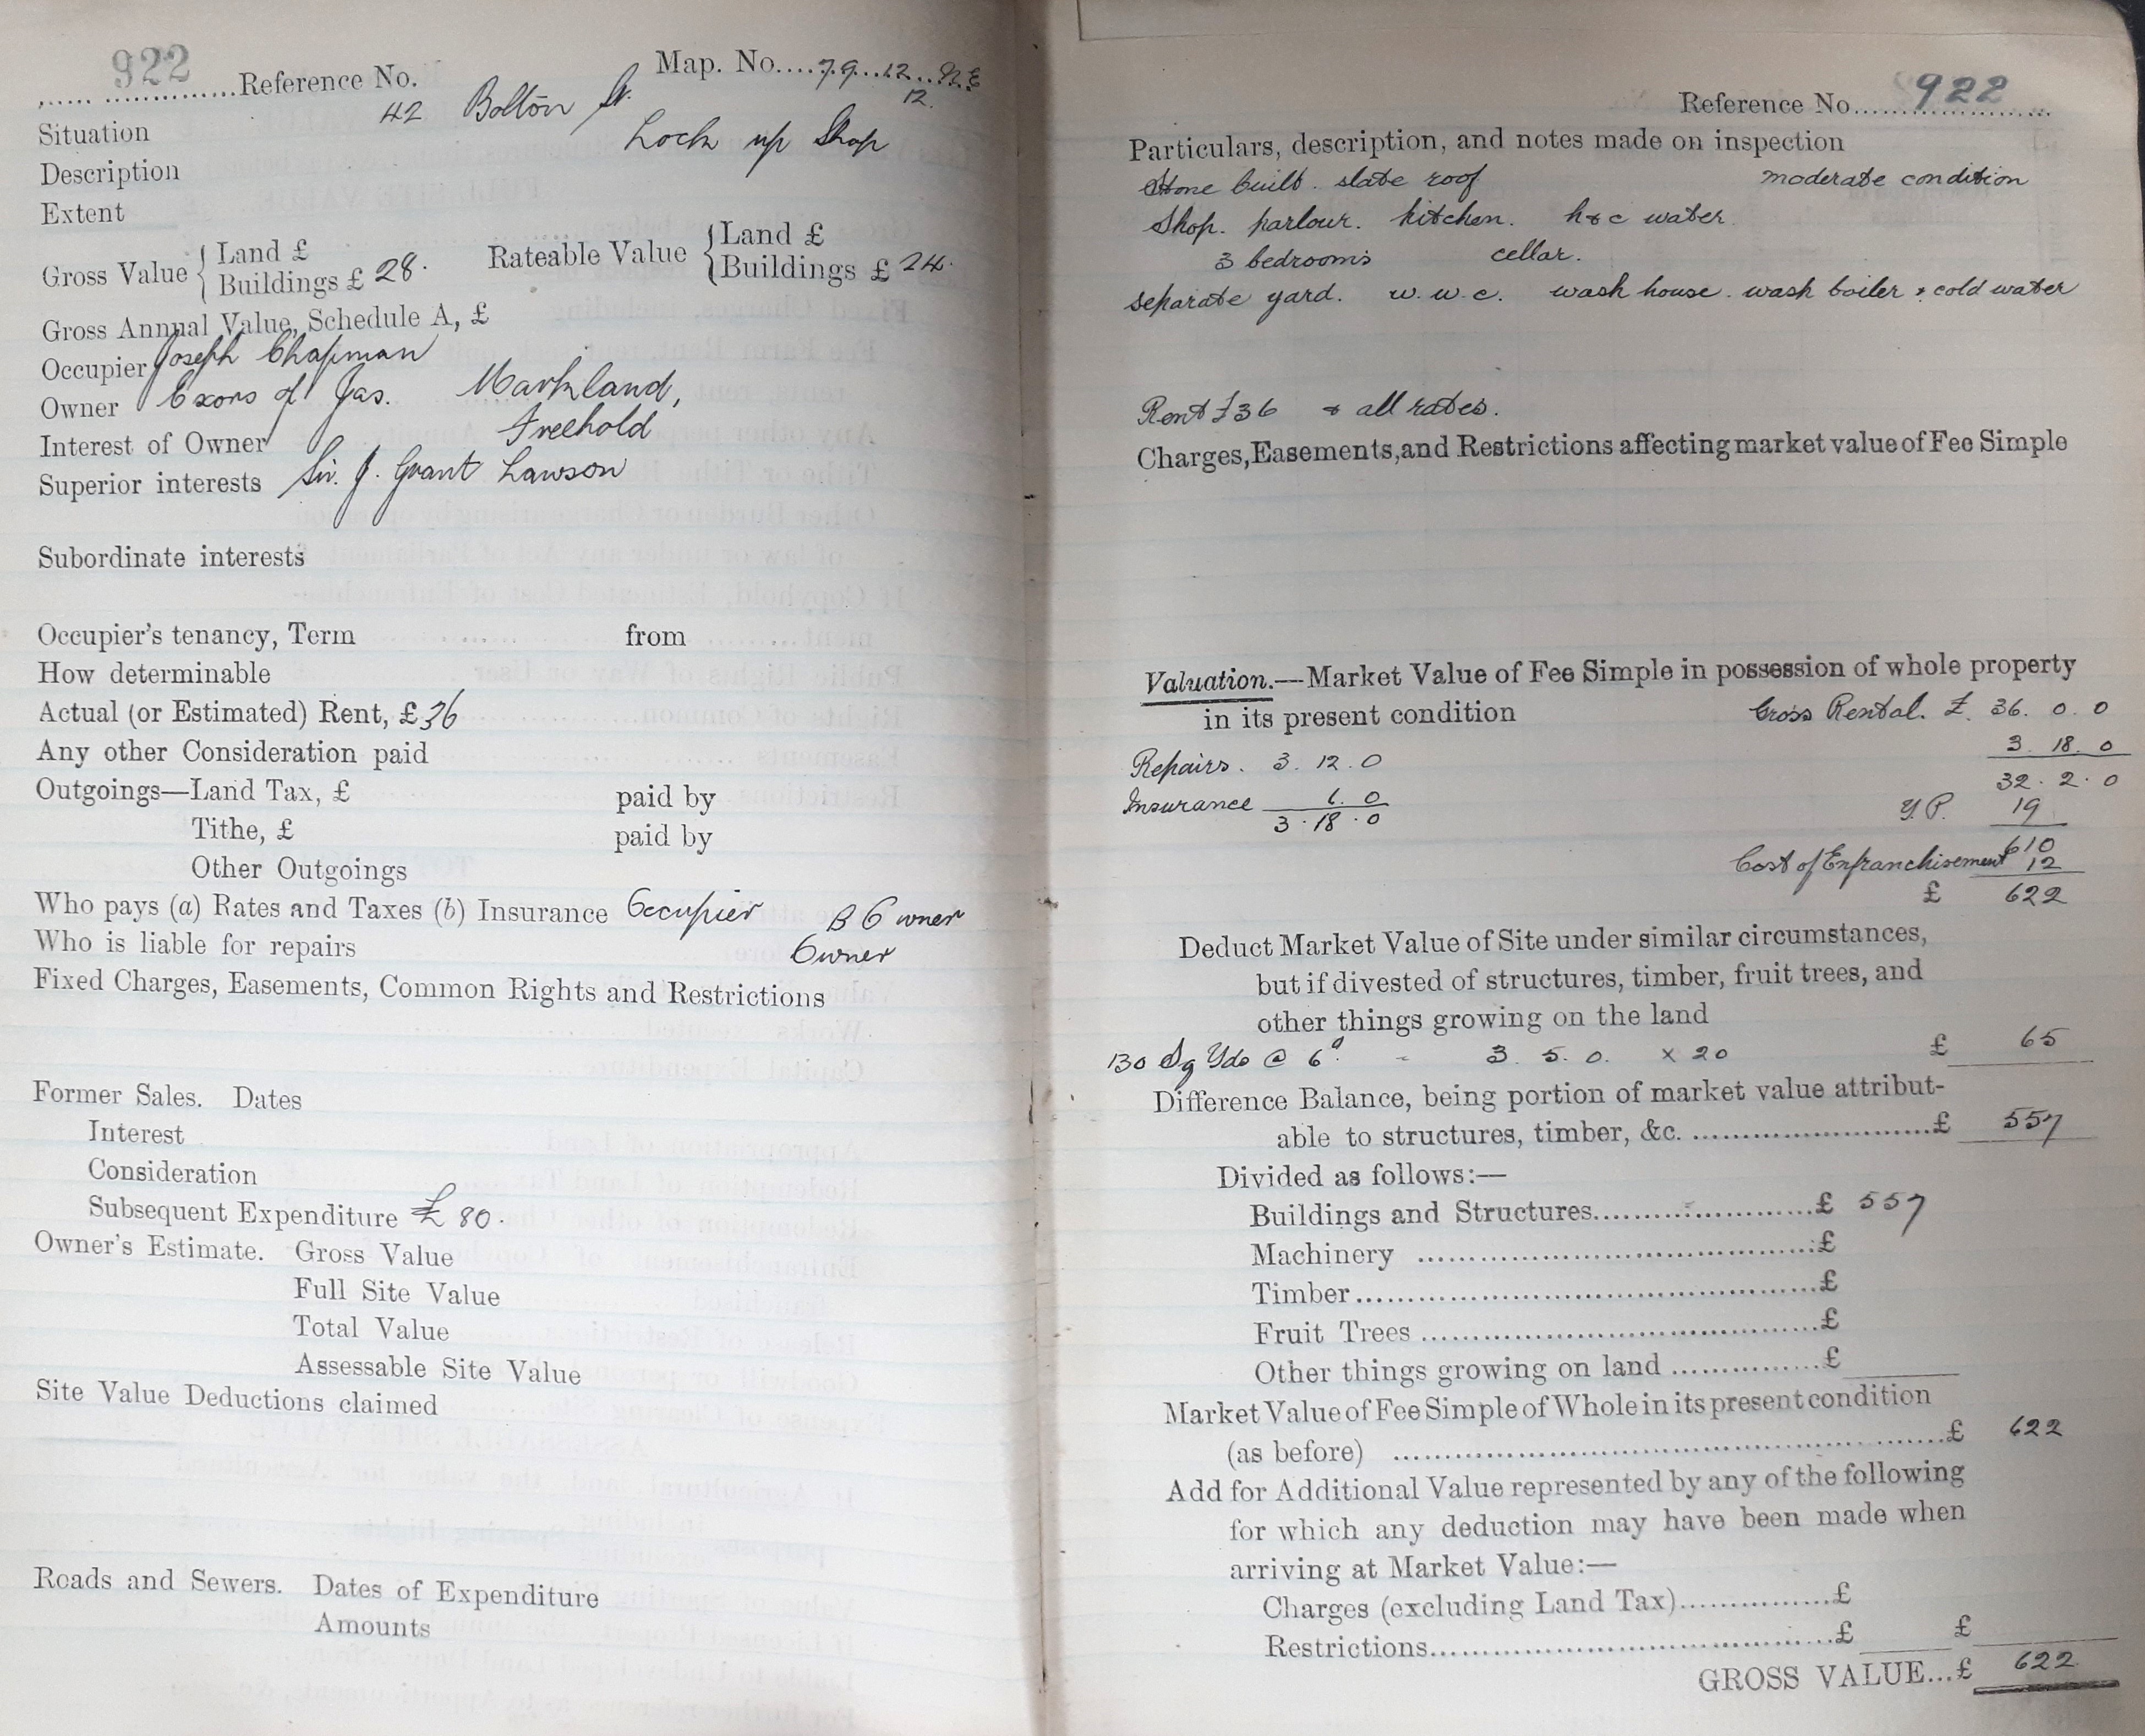 922 Reference No. Map. No. 79. 12. N.E
12.
Situation 42 Bolton St.
Description Lock up Shop
Extent
Gross Value { Land £
Buildings £ 28.
Rateable Value { Land £
Buildings £ 24.
Gross Annual Value, Schedule A, £
Occupier Joseph Chapman
Owner Exors of Jas. Markland,
Interest of Owner Freehold
Superior interests Sir. J. Grant Lawson
Subordinate interests
Occupier's tenancy, Term from
How determinable
Actual (or Estimated) Rent, £ 36
Any other Consideration paid
Outgoings—Land Tax, £ paid by
Tithe, £ paid by
Other Outgoings
Who pays (a) Rates and Taxes (b) Insurance Occupier B Owner
Who is liable for repairs Owner
Fixed Charges, Easements, Common Rights and Restrictions
Former Sales. Dates
Interest
Consideration
Subsequent Expenditure £ 80.
Owner's Estimate. Gross Value
Full Site Value
Total Value
Assessable Site Value
Site Value Deductions claimed
Roads and Sewers. Dates of Expenditure
Amounts
Reference No. 922
Particulars, description, and notes made on inspection
Stone built. slate roof moderate condition
Shop. parlour. kitchen. h & c water.
3 bedrooms cellar.
separate yard. w. w. c. wash house. wash boiler & cold water
Rent £36 & all rates.
Charges, Easements, and Restrictions affecting market value of Fee Simple
Valuation.—Market Value of Fee Simple in possession of whole property
in its present condition Gross Rental. £. 36. 0. 0
3. 18. 0
Repairs. 3. 12. 0
32. 2. 0
Insurance 6. 0
Y.P. 19
3. 18. 0
610
Cost of Enfranchisement 12
£ 622
Deduct Market Value of Site under similar circumstances,
but if divested of structures, timber, fruit trees, and
other things growing on the land
130 Sq Yds @ 6d. - 3. 5. 0. x 20 £ 65
Difference Balance, being portion of market value attribut-
able to structures, timber, &c. £ 557
Divided as follows:—
Buildings and Structures £ 557
Machinery £
Timber £
Fruit Trees £
Other things growing on land £
Market Value of Fee Simple of Whole in its present condition
(as before) £ 622
Add for Additional Value represented by any of the following
for which any deduction may have been made when
arriving at Market Value:—
Charges (excluding Land Tax) £
Restrictions £ £
GROSS VALUE...£ 622